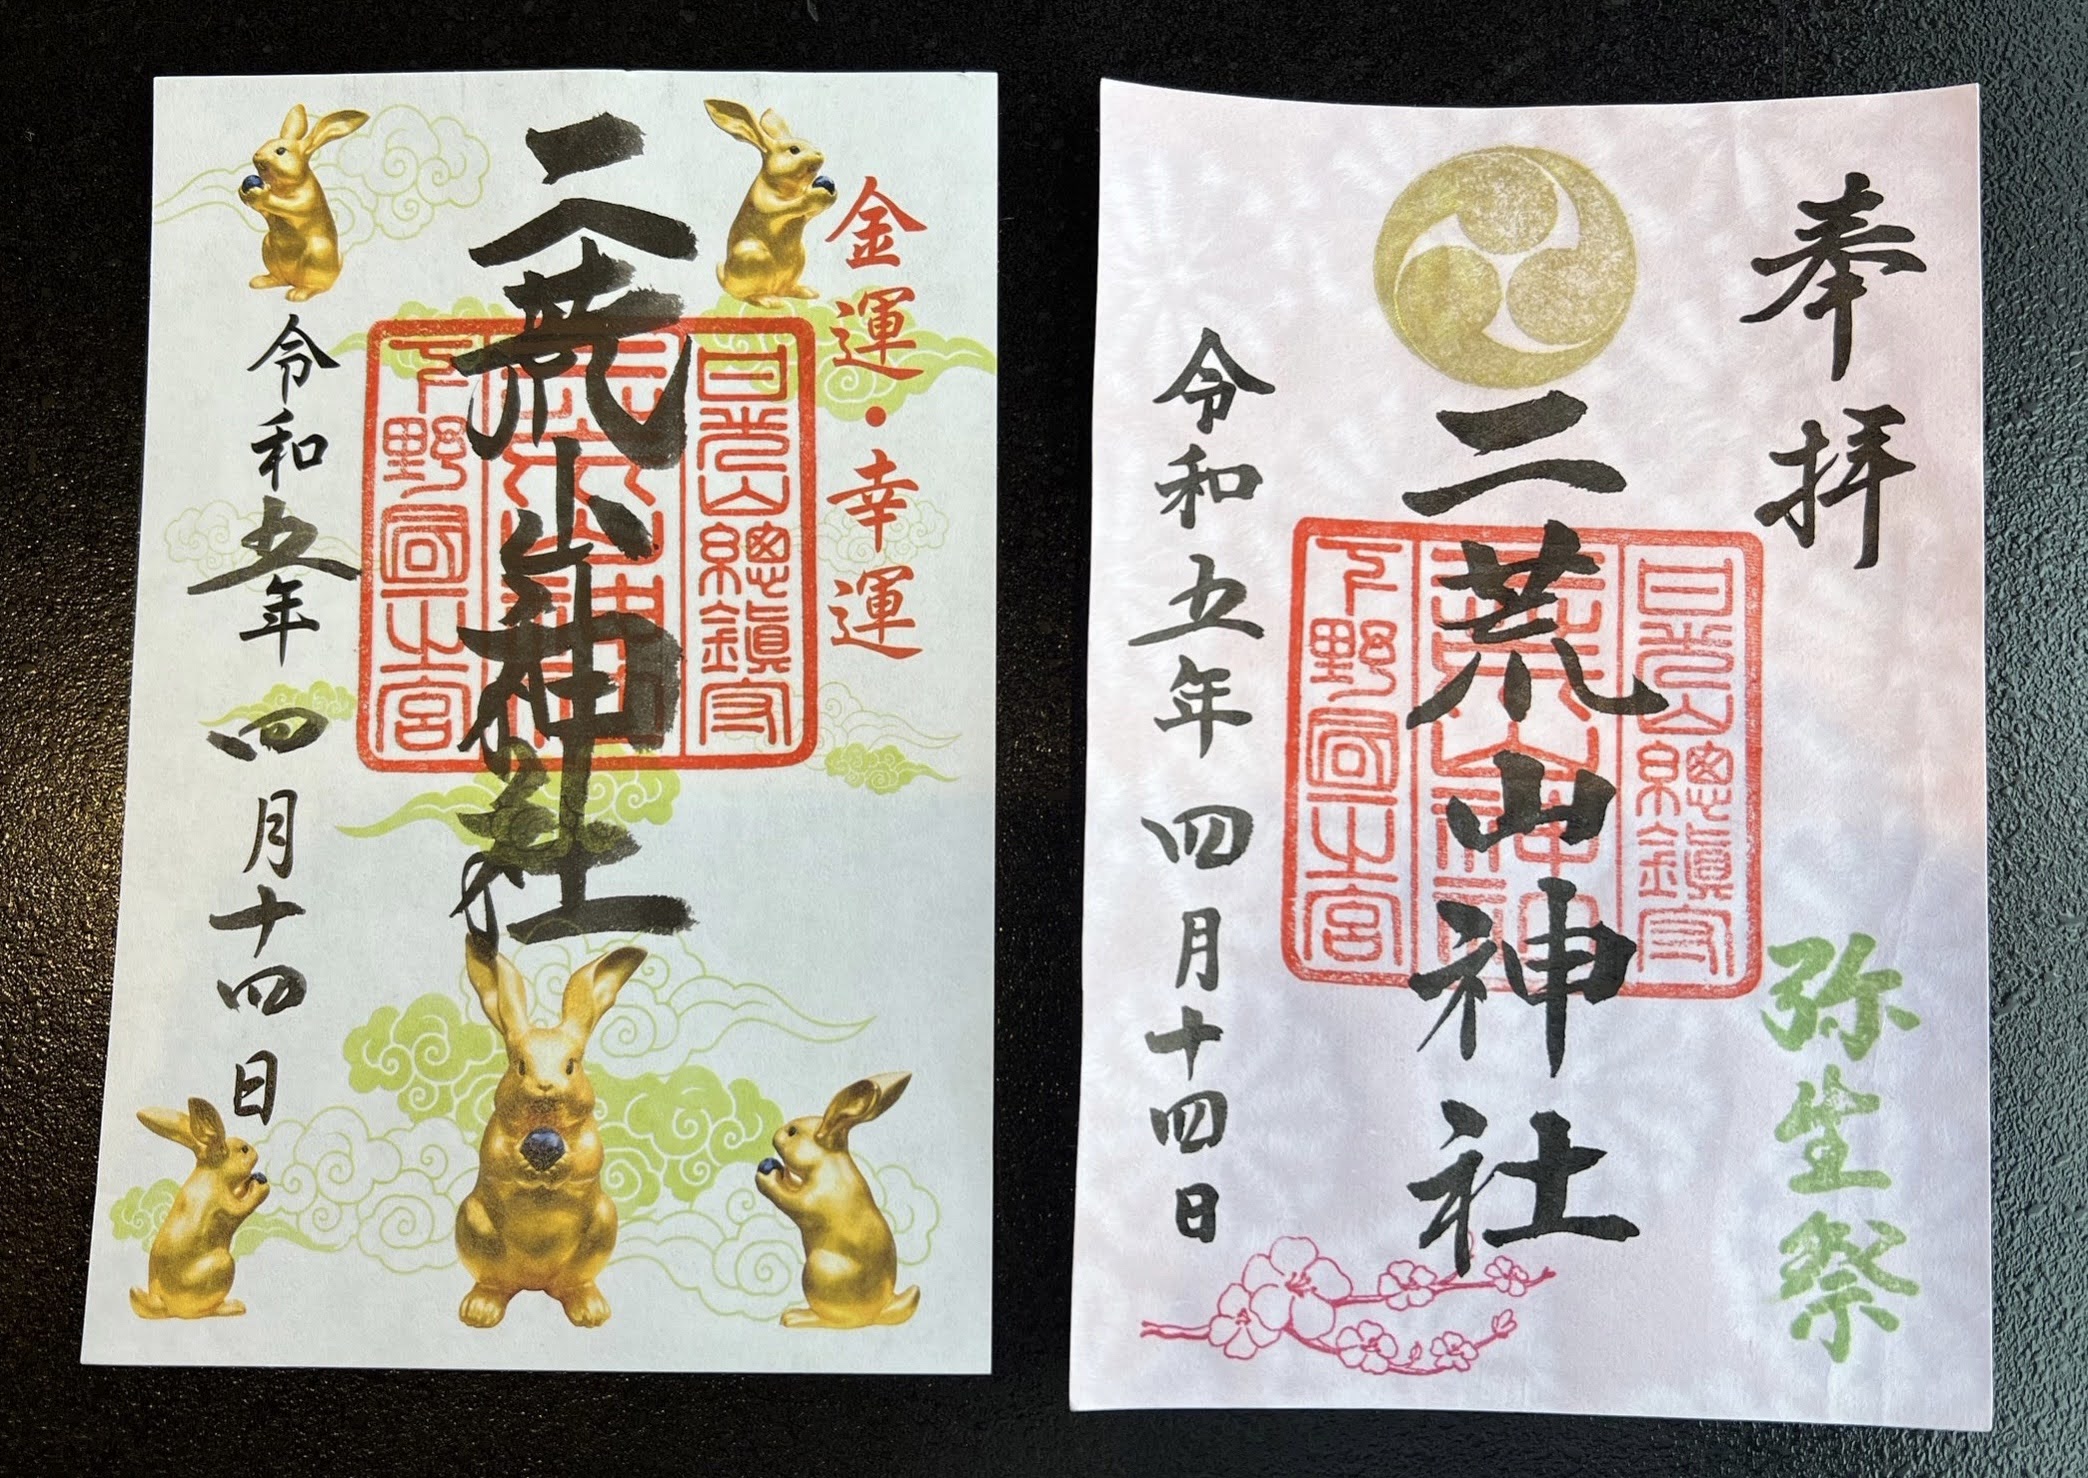 金運・幸運
二荒山神社
日光山總鎮守
二荒山神社
下野國一之宮
令和五年四月十四日
奉拝
弥生祭
二荒山神社
日光山總鎮守
二荒山神社
下野國一之宮
令和五年四月十四日